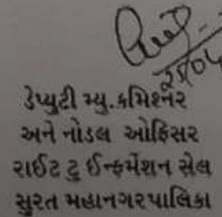 ડેપ્યુટી મ્યુ.કમિશ્નર
અને નોડલ ઓફિસર
રાઈટ ટુ ઈન્ફર્મેશન સેલ
સુરત મહાનગરપાલિકા